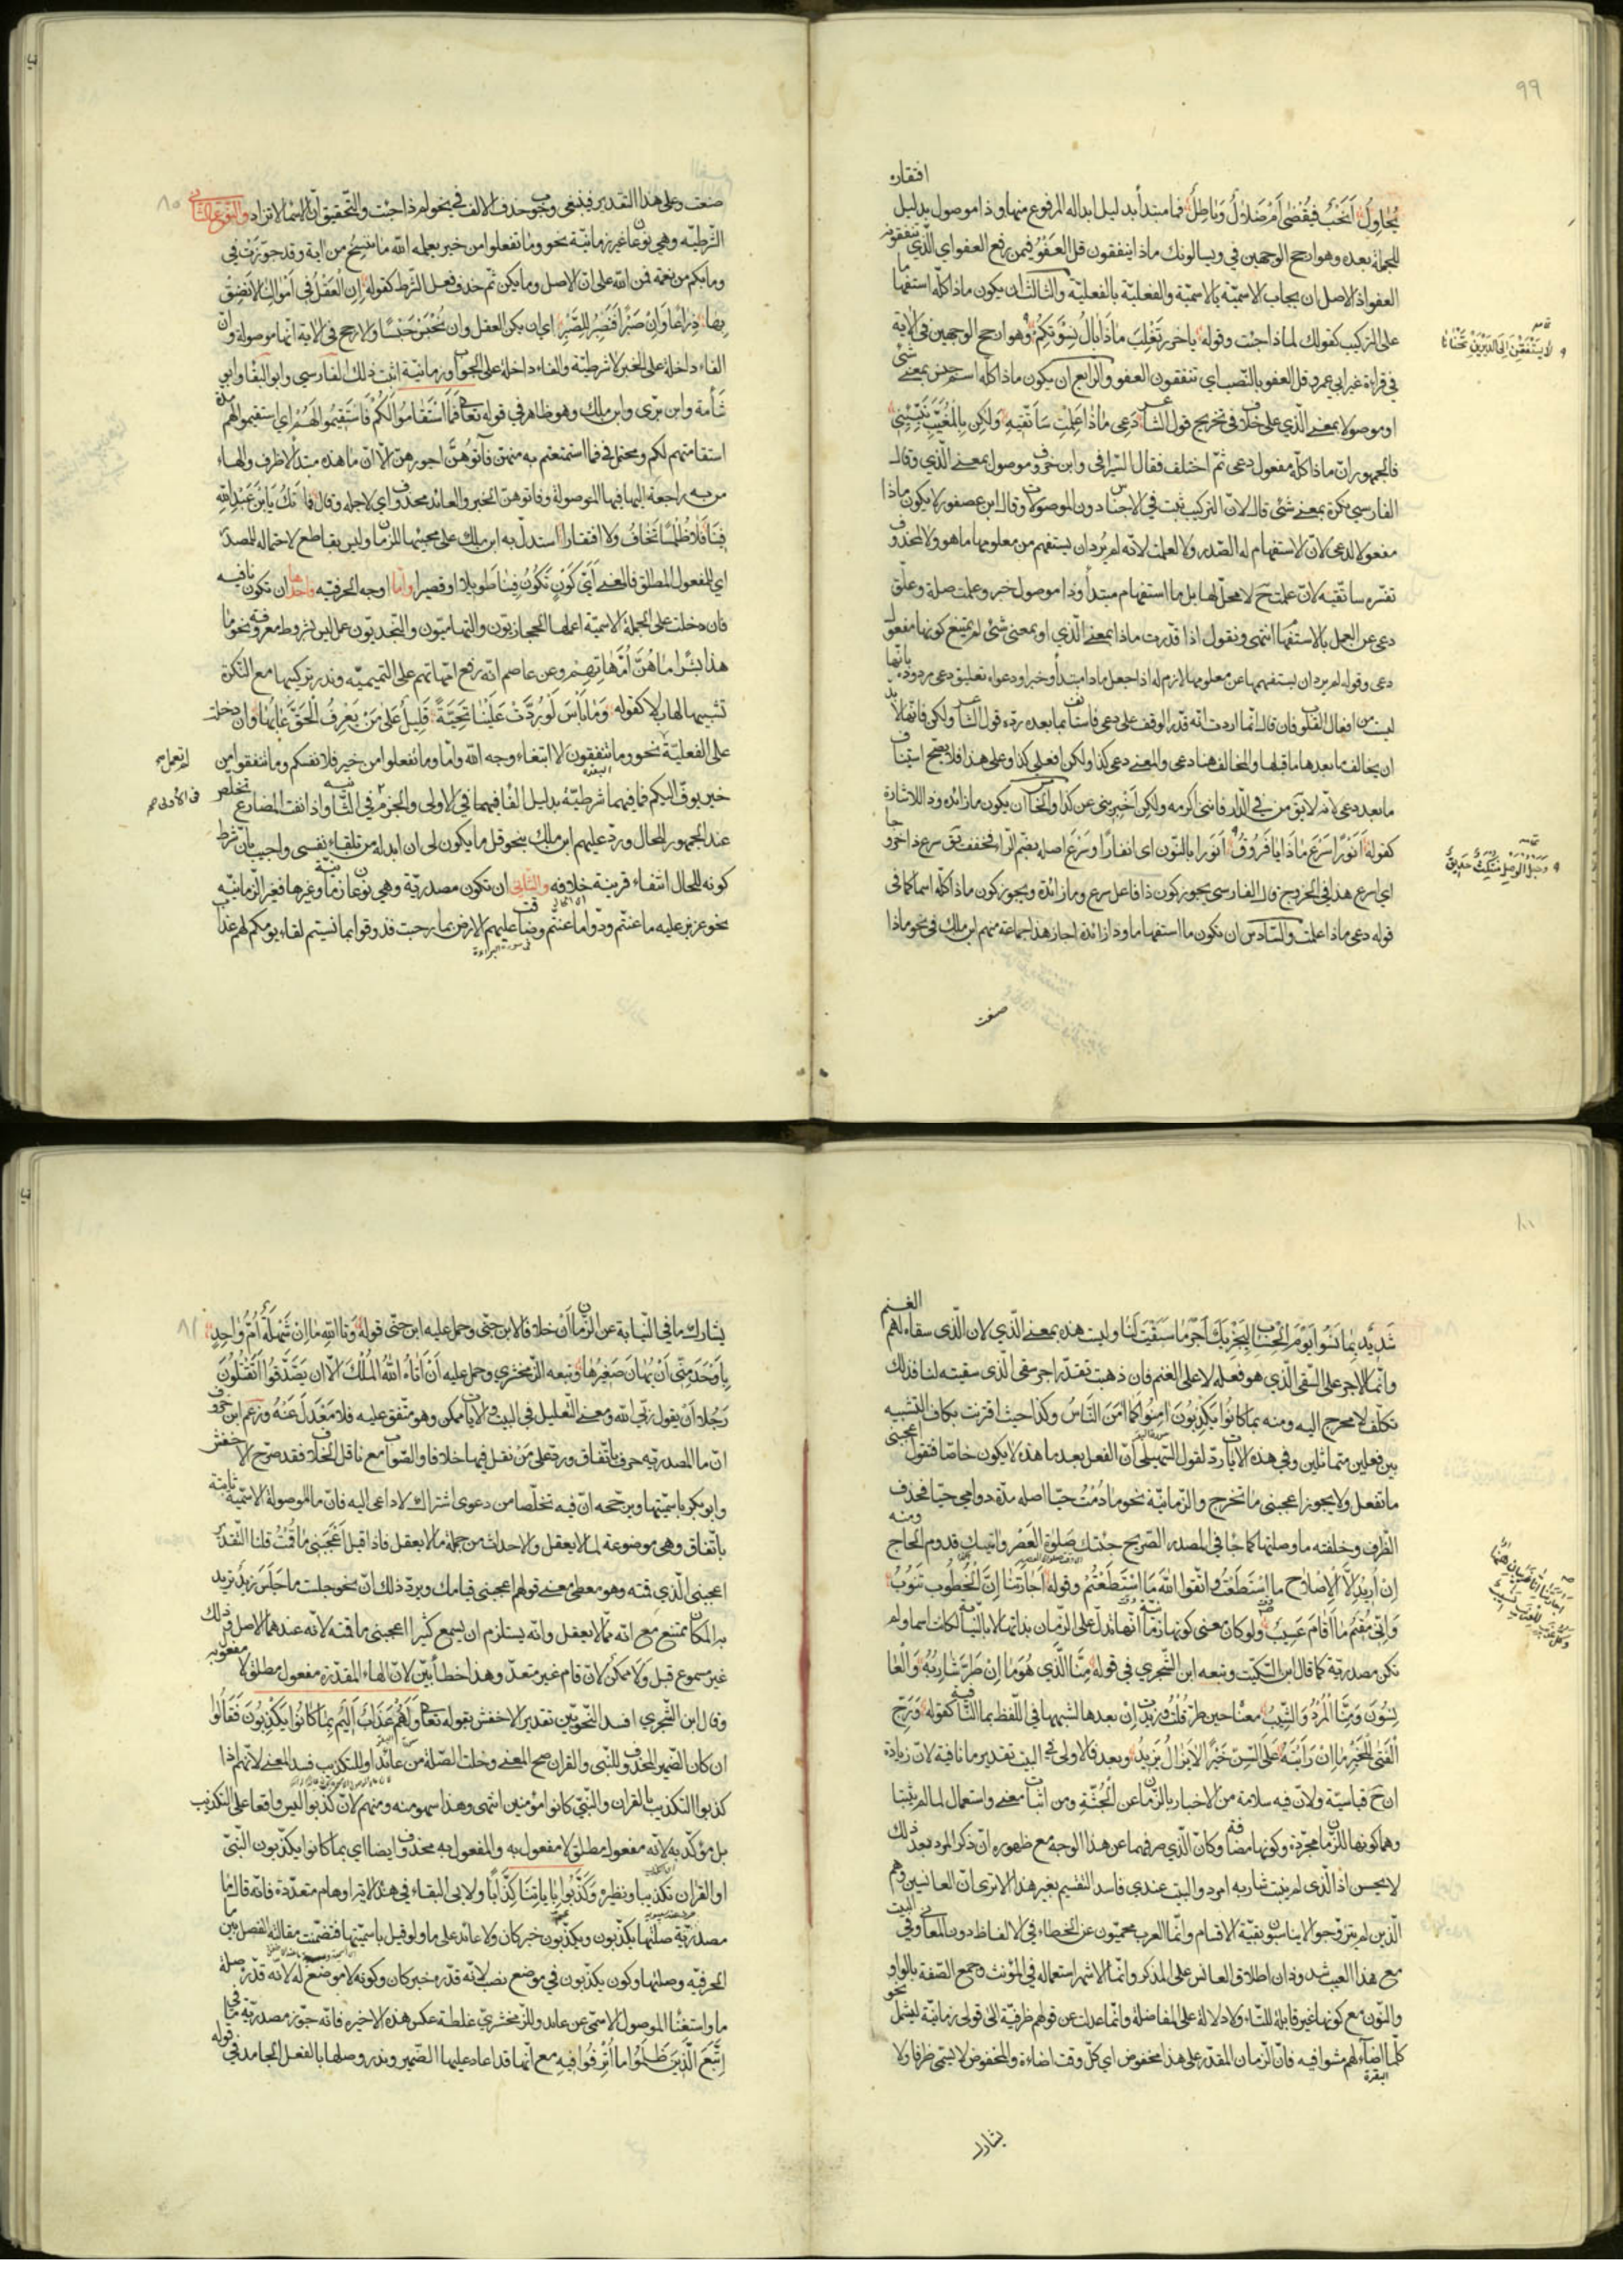 99
افتقار
يُحَاوِلُ أَنَحْبٌ فَيُقْضَى أَمْ ضَلَالٌ وَبَاطِلُ فما مبتدأ بدليل ابداله المرفوع منها وذا موصول بدليل
للجملة بعده وهو ارجح الوجهين في ويسالونك ماذا ينفقون قل العفوُ فيمن رفع العفو اي الّذي ينفقونه
العفو اذ الاصل ان يجاب الاسميّة بالاسميّة والفعليّة بالفعليّة والثالث ان يكون ماذا كلّه استفهاما
على التركيب كقولك لماذا جئت وقوله يا خزر تغلب ماذا بال نسوتكم وهو ارجح الوجهين في الآية
في قراءة غير ابي عمرو قل العفو بالنّصب اي تنفقون العفو والرابع ان يكون ماذا كله اسم جنس بمعنى شئ
او موصولا بمعنى الّذي على خلاف في تخريج قول الشاعر دَعِى مَاذَا عَلِمْتِ سَأَتَّقِيهِ وَلكِن بِالْمُغَيَّبِ نَبِّئِينِي
فالجمهور ان ماذا كلّه مفعول دعى ثمّ اختلف فقال السّيرافي وابن خروف موصول بمعنى الّذي وقال
الفارسي نكرة بمعنى شئ قال لانّ التركيب ثبت في الاجناس دون الموصولات وقال ابن عصفور لا يكون ماذا
مفعولا لدعى لانّ الاستفهام له الصّدر ولا لعلمت لانّه لم يُرد ان يستفهم عن معلومها ما هو ولا لمحذوف
يفسّره ساتّقيه لانّ علمت ح لا محلّ لها بل ما استفهام مبتدأ وذا موصول خبر وعلمت صلة وعلّق
دعى عن العمل بالاستفهام انتهى ونقول اذا قدّرت ماذا بمعنى الّذي او بمعنى شئ لم يمتنع كونها مفعول
دعى وقوله لم يرد ان يستفهم عن معلومها لازم له اذا جعل ماذا مبتدأ وخبرا ودعواه تعليق دعى مردودة بانّها
ليست من افعال القلوب فان قال انّما اردت انّه قدّر الوقف على دعى فاستأنف ما بعده ردّه قول الشاعر ولكن فانّها لا بدّ
ان يخالف ما بعدها ما قبلها والمخالف هنا دعى والمعنى دعى كذا ولكن افعلي كذا وعلى هذا فلا يصحّ استيناف
ما بعد دعى لانّه لا يقال من في الدّار فانّنى اكرمه ولكن اخبرني عن كذا والخامس ان يكون ما زائده وذا للاشارة
كقوله أَنَوْرًا سَرْعَ مَاذَا يَا فَرُوقُ أنورا بالنّون اي انفارا وسَرْعَ اصله بضمّ الرّاء فخفف يقال سرع ذا خروجا
اي اسرع هذا في الخروج قال الفارسي يجوز كون ذا فاعل سرع وما زائدة ويجوز كون ماذا كلّه اسما كما في
قوله دعى ماذا علمت والسّادس ان يكون ما استفهاما وذا زائدة اجازه جماعة منهم ابن مالك في نحو ماذا
صنعت
صنعت وعلى هذا التقدير فينبغي وجوب حذف الالف في نحو لم ذا جئت والتّحقيق انّ الاسماء لا تزاد والنّوع الثّاني
الشّرطيّه وهي نوعان غير زمانيّة نحو وما تفعلوا من خير يعلمه الله ما ننسخ من آية وقد جوّزت في
وما بكم من نعمة فمن الله على انّ الاصل وما يكن ثم حذف فعل الشّرط كقوله إِنِ الْعَقْلُ فِي أَمْوَالِنَا لَا نَضِقْ
بِهَا ذِرَاعًا وَإِنْ صَبْرًا فَنَصْبِرُ لِلصَّبْرِ اي ان يكن العقل وان نُحْبَسْ حَبْسًا والارجح في الآية انّها موصولة وانّ
الفاء داخلة على الخبر لا شرطيّة والفاء داخلة على الجواب وزمانيّة اثبت ذلك الفارسي وابو البقاء وابي
شامة وابن برّى وابن مالك وهو ظاهر في قوله تعالى فَمَا اسْتَقَامُوا لَكُمْ فَاسْتَقِيمُوا لَهُمْ اي استقيموا لهم مدة
استقامتهم لكم ومحتمل في فما استمتعتم به منهن فآتوهُنَّ اجورهنّ الّا انّ ما هذه مبتدأ لا ظرف والهاء
من به راجعة اليها فيها الموصولة وفآتوهنّ الخبر والعائد محذوف اي لاجله وقال فَمَا تَكُ يَا بْنَ عَبْدِ اللهِ
فِينَا فَلَا ظُلْمًا نَخَافُ وَلَا افتقارا استدلّ به ابن مالك على مجيئها للزمان وليس بقاطع لاحتماله للمصدر
اي المفعول المطلق فالمعنى أَيَّ كَوْنٍ تَكُونُ فِينَا طويلا او قصيرا وامّا اوجه الحرفيّه فاحدها ان تكون نافيه
فان دخلت على الجملة الاسميّة اعملها الحجازيّون والتهاميّون والنّجديّون عمل ليس بشروط معروفة نحو ما
هذا بشرا ما هُنَّ أُمَّهَاتِهِمْ وعن عاصم انّه رفع امّهاتهم على التميميّه وندر تركيبها مع النّكرة
تشبيها لها بلا كقوله وَمَا بَأْسَ لَوْ رُدَّتْ عَلَيْنَا تَحِيَّةً قَلِيلٌ عَلَى مَنْ يَعْرِفُ الْحَقَّ عَابُهَا وان دخلت
على الفعليّة لم تعمل نحو وما تنفقون الا ابتغاء وجه الله وامّا وما تنفقوا من خير فلانفسكم وما تنفقوا من
خير يوفّ اليكم فما فيهما شرطيّة بدليل الفاء فيهما في الاولى والجزم في الثّانيه واذا نفت المضارع تخلّص
عند الجمهور للحال وردّ عليهم ابن مالك بنحو قل ما يكون لى ان ابدله من تلقاء نفسى واجيب بانّ شرط
كونه للحال انتفاء قرينة خلافه والثّاني ان تكون مصدريّة وهي نوعان زمانيّة وغيرها فغير الزّمانيّه
نحو عزيز عليه ما عنتّم ودّوا ما عنتّم وضاقت عليهم الارض بما رحبت فذوقوا بما نسيتم لقاء يومكم لهم عذاب
100
شَدِيدٌ بِمَا نَسُوا يَوْمَ الْحِسَابِ لِيَجْزِيَكَ أَجْرَ مَا سَقَيْتَ لَنَا وليست هذه بمعنى الّذي لان الّذى سقاه لهم الغنم
وانّما الاجر على السّقى الّذي هو فعله لا على الغنم فان ذهبت تقدّر اجر سقى الّذى سقيته لنا فذلك
تكلّف لا محوج اليه ومنه بما كانوا يَكْذِبُونَ آمِنُوا كَمَا آمَنَ النَّاسُ وكذا حيث اقترنت بكاف التشبيه
بين فعلين متماثلين وفي هذه الآيات ردّ لقول السّهيلى انّ الفعل بعد ما هذه لا يكون خاصّا فتقول اعجبنى
ما تفعل ولا يجوز اعجبنى ما تخرج والزّمانيّة نحو ما دُمْتُ حيّا اصله مدّة دوامي حيّا فحذف
الظّرف وخلفته ما وصلتها كما جاء في المصدر الصّريح جئتك صَلَاةَ العَصْرِ وآتيك قدوم الحاج ومنه
إِنْ أُرِيدُ إِلَّا الْإِصْلَاحَ ما اسْتَطَعْتُ وَاتَّقُوا اللَّهَ مَا اسْتَطَعْتُمْ وقوله أَجَارَتَنَا إِنَّ الْخُطُوبَ تَنُوبُ
وَإِنِّي مُقِيمٌ مَا أَقَامَ عَسِيبُ ولو كان معنى كونها زمانيّة انّها تدلّ على الزّمان بذاتها لا بالنّيابة لكانت اسما ولم
تكن مصدريّة كما قال ابن السّكّيت وتبعه ابن الشّجري في قوله مِنَّا الَّذِي هُوَ مَا إِنْ طَرَّ شَارِبُهُ وَالْعَا
نِسُونَ وَمِنَّا الْمُرْدُ وَالشِّيبُ معناه حين طرّ قُلْتُ وزيدت إِنْ بعدها لشبهها في اللّفظ بما النّافية كقوله وَرَجِّ
الْفَتَى لِلْخَيْرِ مَا إِنْ رَأَيْتَهُ عَلَى السِّنِّ خَيْرًا لَا يَزَالُ يَزِيدُ وبعد فالاولى في البيت تقدير ما نافية لانّ زيادة
ان ح قياسيّة ولانّ فيه سلامة من الاخبار بالزّمان عن الْجُثَّةِ ومن اثبات معنى واستعمال لما لم يثبتا
وهما كونها للزّمان مجرّدة وكونها مضافة وكانّ الّذي صرفهما عن هذا الوجه مع ظهوره انّ ذكر المرد بعد ذلك
لا يحسن اذ الّذى لم ينبت شاربه امرد والبيت عندي فاسد التقسيم بغير هذا الا ترى انّ العانسين وهم
الّذين لم يتزوّجوا لا يناسبون بقيّة الاقسام وانّما العرب محميّون عن الخطاء في الالفاظ دون المعانى وفي البيت
مع هذا العيب شذوذان اطلاق العانس على المذكّر وانّما الاشهر استعماله في المؤنث وجمع الصّفة بالواو
والنّون مع كونها غير قابلة للتّاء ولا دلالة على المفاضلة وانّما عدلت عن قولهم ظرفيّة الى قولى زمانيّة ليشمل نحو
كلّما اضاء لهم مشوا فيه فانّ الزّمان المقدّر على هذا مخفوض اي كلّ وقت اضاءة والمخفوض لا يسمّى ظرفا ولا
يشارك
يشارك ما في النّيابة عن الزّمان أَنْ خلافا لابن جنّى وحمل عليه ابن جنّى قوله وَتَاللهِ مَا إِنْ شَهْلَةٌ أُمُّ وَاحِدٍ
بِأَوْجَدَ مِنِّي أَنْ يُهَانَ صَغِيرُهَا وتبعه الزّمخشري وحمل عليه أَنْ آتَاهُ اللَّهُ الْمُلْكَ الّا ان يَصَّدَّقُوا أَتَقْتُلُونَ
رَجُلًا أَنْ يَقُولَ رَبِّيَ الله ومعنى التّعليل في البيت والآيات ممكن وهو متّفق عليه فلا مَعْدَلَ عَنْهُ وزعم ابن خروف
انّ ما المصدريّه حرف باتّفاق وردّ على مَنْ نقل فيها خلافا والصّواب مع ناقل الخلاف فقد صرّح الاخفش
وابو بكر باسميّتها ويرجّحه انّ فيه تخلّصا من دعوى اشتراك لا داعى اليه فانّ ما الموصولة الاسميّة ثابتة
باتّفاق وهي موضوعة لما لا يعقل والاحداث من جملة ما لا يعقل فاذا قيل أَعْجَبَنِي مَا قُمْتَ قلنا التّقدير
اعجبنى الّذي قمته وهو معطى معنى قولهم اعجبنى قيامك ويردّ ذلك انّ نحو جلست ما جَلَسَ زَيْدٌ تريد
به المكان ممتنع مع انّه ممّا لا يعقل وانّه يستلزم ان يسمع كثيرا اعجبنى ما قمته لانّه عندهما الاصل وذلك
غير مسموع قيل ولا ممكن لانّ قام غير متعدّ وهذا خطأ بيّن لانّ الهاء المقدّرة مفعول مطلق لا مفعول به
وقال ابن الشّجري افسد النّحويّين تقدير الاخفش بقوله تعالى وَلَهُمْ عَذَابٌ أَلِيمٌ بِمَا كَانُوا يَكْذِبُونَ فَقَالُوا
ان كان الضّمير المحذوف للنّبى والقرآن صحّ المعنى وخلت الصّلة من عائد او للتكذيب فسد المعنى لانّهم اذا
كذبوا التكذيب بالقرآن والنّبىّ كانوا مؤمنين انتهى وهذا سهو منه ومنهم لانّ كذّبوا ليس واقعا على التّكذيب
بل مؤكّد به لانّه مفعول مطلق لا مفعول به والمفعول به محذوف ايضا اي بما كانوا يكذّبون النّبىّ
او القرآن تكذيبا ونظيره وَكَذَّبُوا بِآيَاتِنَا كِذَّابًا ولابى البقاء في هذه الآية اوهام متعدّدة فانّه قال ما
مصدريّة صلتها يكذّبون ويكذّبون خبر كان ولا عائد على ما ولو قيل باسميّتها فتضمّنت مقالته الفصل بين ما
الحرفيّه وصلتها وكون يكذّبون في موضع نصب لانّه قدّره خبر كان وكونه لا موضع له لانّه قدّر صلة
ما واستغناء الموصول الاسمىّ عن عائد وللزّمخشري غلطة عكس هذه الاخيره فانّه جوّز مصدريّة ما في
اتَّبَعَ الَّذِينَ ظَلَمُوا مَا أُتْرِفُوا فِيهِ مع انّها قد اعاد عليها الضّمير وندر وصلها بالفعل الجامد في قوله